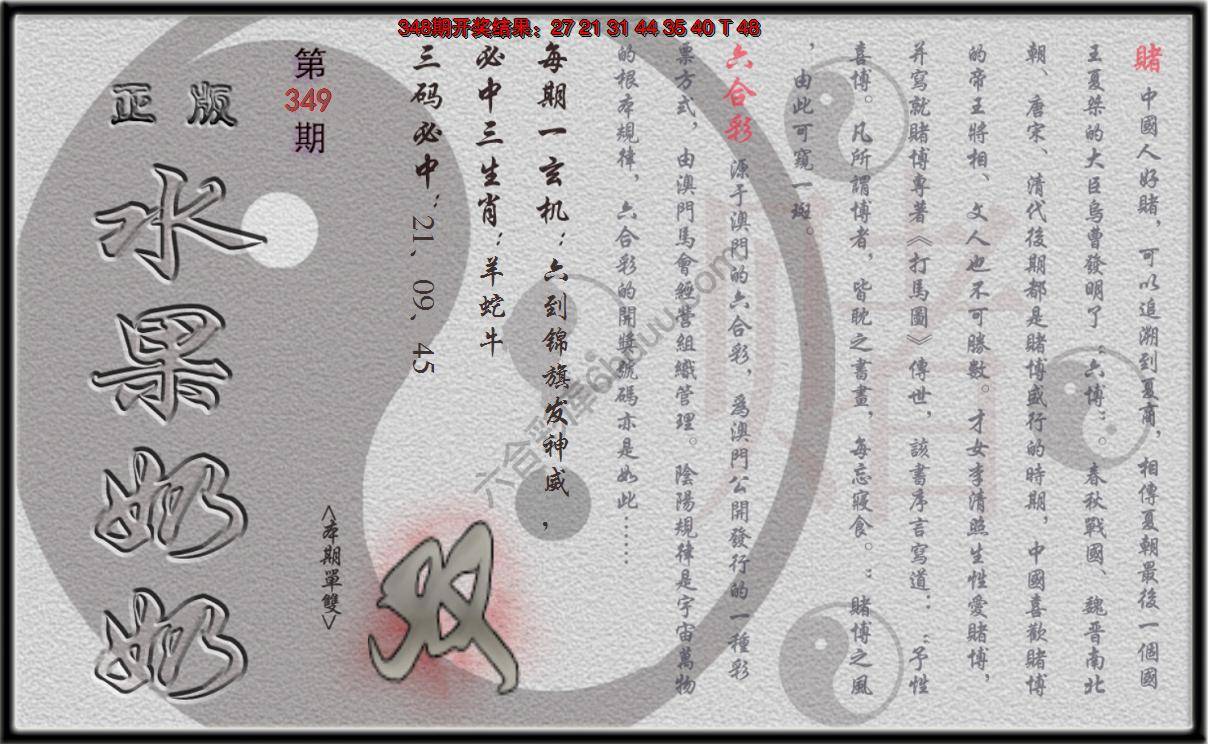 348期开奖结果：27 21 31 44 35 40 T 48
賭 中國人好賭，可以追溯到夏商，相傳夏朝最後一個國
王夏桀的大臣烏曹發明了“六博”。春秋戰國、魏晋南北
朝、唐宋、清代後期都是賭博盛行的時期，中國喜歡賭博
的帝王將相、文人也不可勝數。才女李清照生性愛賭博，
并寫就賭博專著《打馬圖》傳世，該書序言寫道：“予性
喜博。凡所謂博者，皆耽之晝書，每忘寢食。：賭博之風
，由此可窺一斑。
六合彩 源于澳門的六合彩，爲澳門公開發行的一種彩
票方式，由澳門馬會經營組織管理。陰陽規律是宇宙萬物
的根本規律，六合彩的開獎號碼亦是如此……
每期一玄机：六到锦旗发神威，
必中三生肖：羊蛇牛
三码必中：21、09、45
第
349
期
<本期單雙>
双
正版
水果奶奶
赌
六合彩库6hduu.com